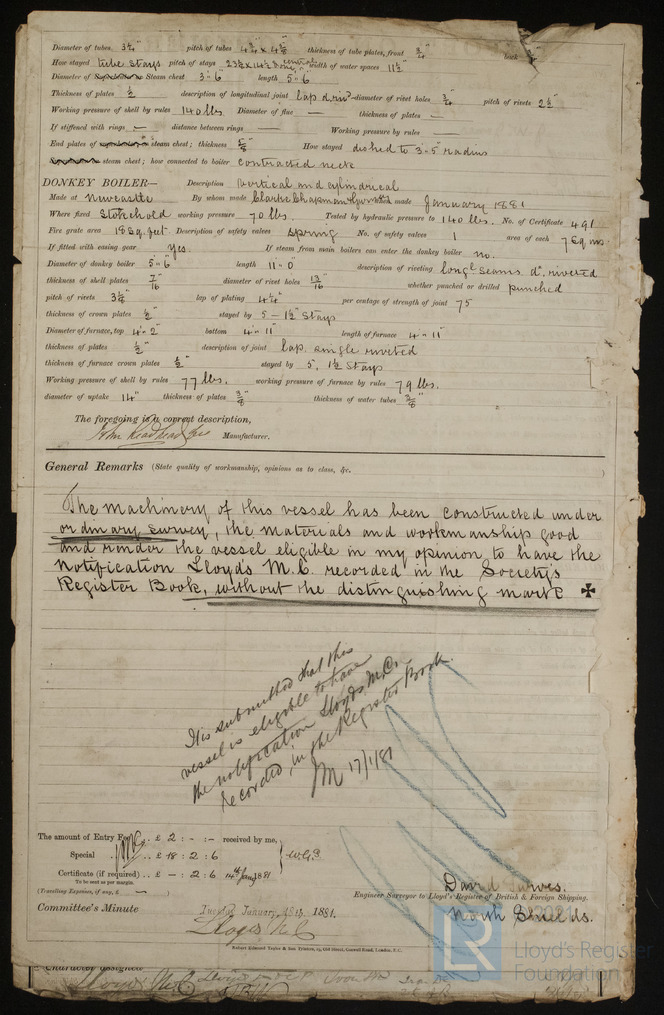 Diameter of tubes 3¼" pitch of tubes 4¾" x 4⅝" thickness of tube plates, front ¾" back
How stayed tube stays pitch of stays 23¾ x 14½ central width of water spaces 11½"
Diameter of Steam chest 3'-6" length 5'-6"
Thickness of plates ½" description of longitudinal joint lap d. riv. diameter of rivet holes ¾" pitch of rivets 2½"
Working pressure of shell by rules 140 lbs Diameter of flue — thickness of plates —
If stiffened with rings — distance between rings — Working pressure by rules —
End plates of steam chest; thickness ⅝" How stayed dished to 3'-5" radius
steam chest; how connected to boiler contracted neck
DONKEY BOILER— Description Vertical and cylindrical
Made at Newcastle By whom made Clarke Chapman & when made January 1881
Where fixed Stokehold working pressure 70 lbs. Tested by hydraulic pressure to 140 lbs. No. of Certificate 491
Fire grate area 18 Sq. feet. Description of safety valves Spring No. of safety valves 1 area of each 7 Sq ins
If fitted with easing gear Yes. If steam from main boilers can enter the donkey boiler no.
Diameter of donkey boiler 5'-6" length 11'-0" description of riveting longl seams d. riveted
thickness of shell plates 7/16 diameter of rivet holes 13/16" whether punched or drilled punched
pitch of rivets 3¼" lap of plating 4¼" per centage of strength of joint 75
thickness of crown plates ½" stayed by 5 - 1½" Stays
Diameter of furnace, top 4'-2" bottom 4'-11" length of furnace 4'-11"
thickness of plates ½" description of joint lap. single riveted
thickness of furnace crown plates ½" stayed by 5, 1½ Stays
Working pressure of shell by rules 77 lbs. working pressure of furnace by rules 79 lbs.
diameter of uptake 14" thickness of plates ⅜" thickness of water tubes ⅜"
The foregoing is a correct description,
John Readhead & Co Manufacturer.
General Remarks (State quality of workmanship, opinions as to class, &c.
The machinery of this vessel has been constructed under
ordinary survey, the materials and workmanship good
and render the vessel eligible in my opinion to have the
notification Lloyd's M.C. recorded in the Society's
Register Book, without the distinguishing mark ✠
It is submitted that this
vessel is eligible to have
the notification Lloyds M.C.
recorded in the Register Book.
JM 17/1/81
The amount of Entry Fee .. £ 2 : - : - received by me,
Special .. £ 18 : 2 : 6 W.G.S
Certificate (if required) .. £ - : 2 : 6 14th Jany 1881
To be sent as per margin.
(Travelling Expenses, if any, £ — )
David Purves.
Engineer Surveyor to Lloyd's Register of British & Foreign Shipping.
North Shields.
Committee's Minute Tuesday January 18th, 1881.
Lloyds M.C.
Character assigned
Lloyds M.C.
LR
Lloyd's Register
Foundation